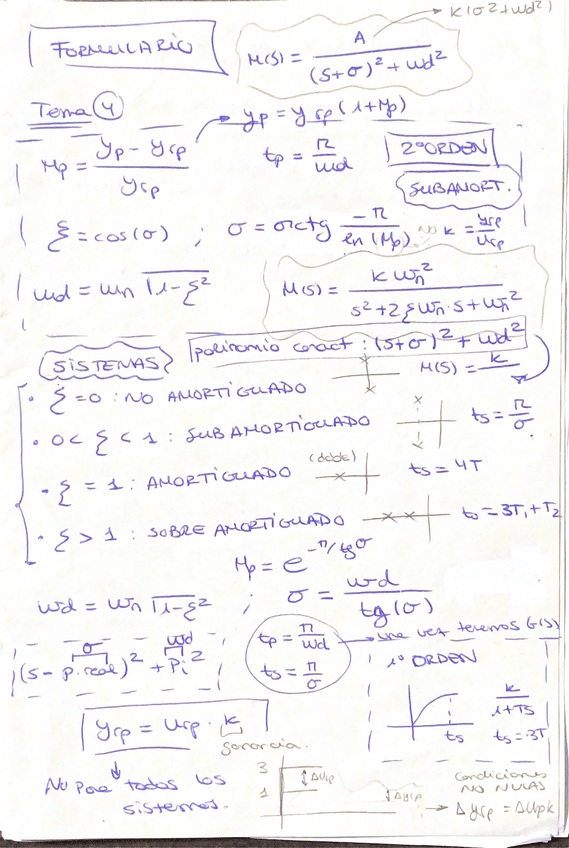 k(σ²+wd²)
FORMULARIO
M(s) = A / ((s+σ)² + wd²)
Tema 4
yp = yrp (1+Mp)
Mp = (yp - yrp) / yrp
tp = π / wd
2º ORDEN
SUBAMORT.
ξ = cos(σ) ; σ = arctg (-π / ln(Mp))
NO k = yrp / urp
wd = wn √1-ξ²
M(s) = k wn² / (s² + 2ξwn·s + wn²)
polinomio caract : (s+σ)² + wd²
SISTEMAS
M(s) = k /
· ξ = 0 : NO AMORTIGUADO
· 0 < ξ < 1 : SUBAMORTIGUADO
ts = π / σ
(doble)
· ξ = 1 : AMORTIGUADO
ts = 4T
· ξ > 1 : SOBREAMORTIGUADO
ts = 3T1 + T2
Mp = e^(-π/tgσ)
wd = wn √1-ξ² ; σ = wd / tg(σ)
σ wd
(s - p.real)² + Pi²
tp = π / wd
ts = π / σ
una vez tenemos G(s)
1º ORDEN
k / 1+Ts
ts
ts = 3T
yrp = urp · k
ganancia.
No para todos los
sistemas.
3
1
Δurp
Δyrp
Condiciones
NO NULAS
Δyrp = Δurpk